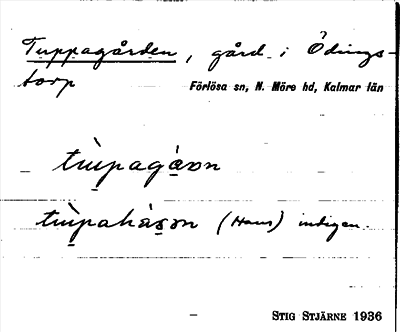 Tuppagården, gård i Ödings-
torp
Förlösa sn, N. Möre hd, Kalmar län
tùpagàɐn
tùpahàsən (Hans) indigen.
STIG STJÄRNE 1936